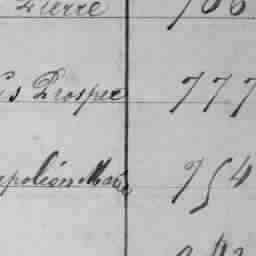 Pierre 706
is Prosper 777
apoléon Marie 754